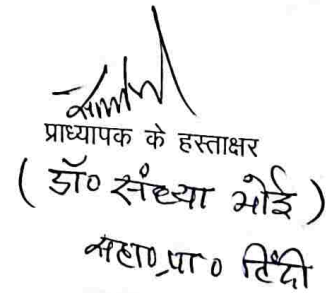 प्राध्यापक के हस्ताक्षर
(डॉ० संध्या भोई)
सहा० प्रा० हिंदी